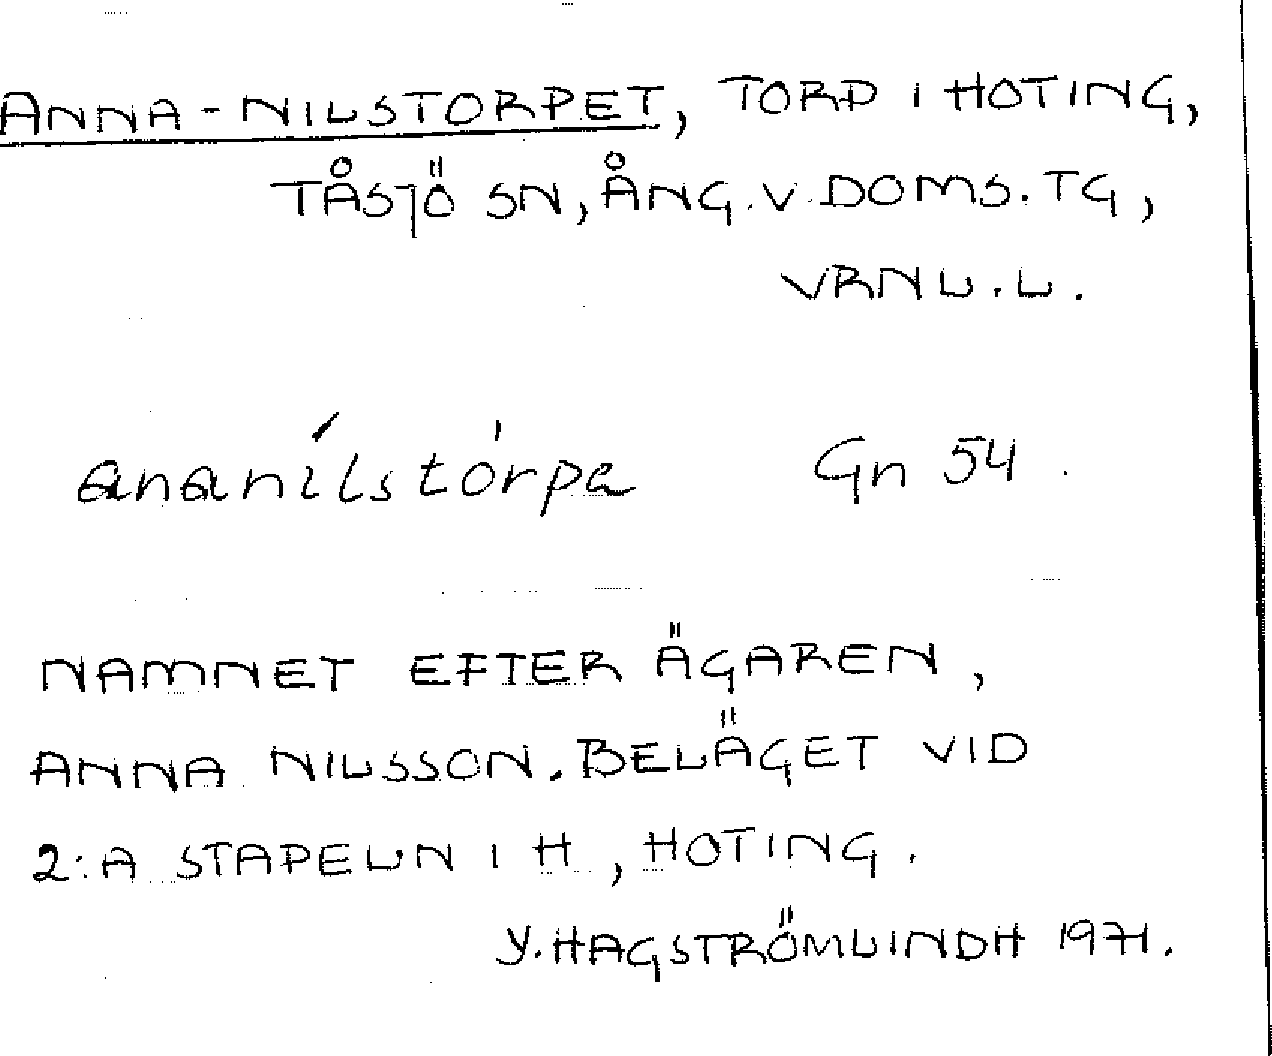 ANNA-NILSTORPET, TORP I HOTING,
TÅSJÖ SN, ÅNG. V. DOMS. TG,
VRNL.L.
ananílstórpa Gn 54
NAMNET EFTER ÄGAREN,
ANNA NILSSON. BELÄGET VID
2:A STAPELN I H, HOTING.
Y. HAGSTRÖMLINDH 1971.